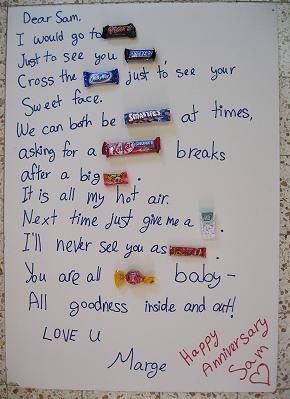 Dear Sam,
I would go to MARS
Just to see you SNICKERS,
Cross the MilkyWay just to see your
Sweet face.
We can both be SMARTIES at times,
asking for a KitKat breaks
after a big
It is all my hot air.
Next time just give me a .
I'll never see you as .
You are all baby-
All goodness inside and out!
LOVE U
Marge
Happy
Anniversary
Sam